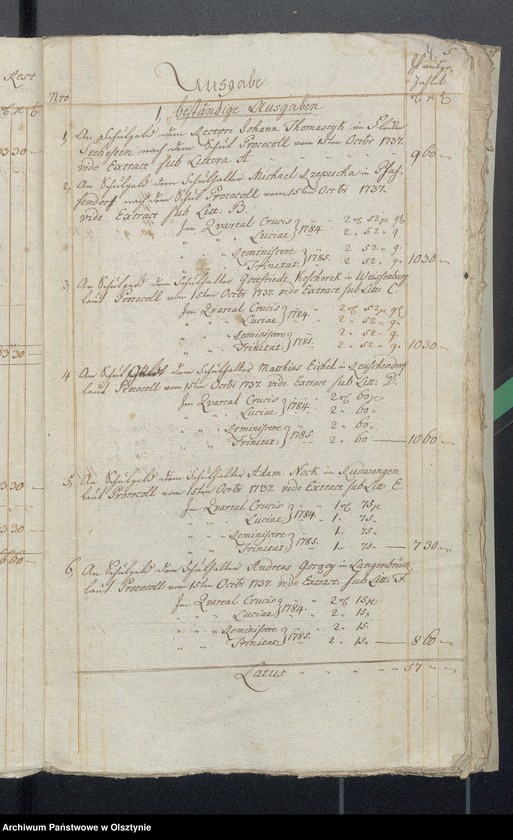 Rest
rh gr
33 30
33 30
3 30
3 30
6 60
5
Ist ausge
zahlet
Nro
Ausgabe
1, beständige Ausgaben
1, An Schulgeld dem Rectori Johann Thomascyk im
Seehesten nach dem Schul Protocoll vom 15ten Octbr 1737.
vide Extract sub Littera A. 9 60 —
2, An Schulgeld dem Schulhalter Michael in
fendorf nach dem Schul Protocoll vom 15ten Octbr 1737.
vide Extract sub Litt. B.
Im Quartal Crucis 1784. 2 rh 52 gr 9
" " Luciae 2 " 52 " 9
" " Reminiscere 1785. 2 52 " 9
" " Trinitat: 2 52 " 9 — 10 30 —
3, An Schulgeld dem Schulhalter Gottfriedt Koschorek in Weissenburg
laut Protocoll vom 15ten Octbr 1737. vide Extract sub Litt: C.
Im Quartal Crucis 1784. 2 rh 52 gr 9
" " Luciae 2 " 52 " 9
" " Reminiscere 1785. 2 " 52 " 9
" " Trinitat: 2 " 52 " 9 — 10 30 —
4 An Schul Geld dem Schulhalter Matthias Eichel in Reuschendorf
laut Protocoll vom 15ten Octbr 1737. vide Extract sub Litt: D.
Im Quartal Crucis 1784. 2 rh 60 gr
" " Luciae 2 " 60
" " Reminiscere 1785. 2 " 60
" " Trinitat: 2 " 60 — 10 60 —
5, An Schulgeld dem Schulhalter Adam Nock in Rudwangen
laut Protocoll vom 15ten Octbr 1737. vide Extract sub Litt: E.
Im Quartal Crucis 1784. 1 rh 75 gr
" " Luciae 1 " 75
" " Reminiscere 1785. 1 " 75
" " Trinitat: 1 " 75 — 7 30 —
6 An Schulgeld dem Schulhalter Andreas Gorgey in Langenbrück
laut Protocoll vom 15ten Octbr 1737. vide Extract sub Litt: F.
Im Quartal Crucis 1784. 2 rh 15 gr
" " Luciae 2 " 15
" " Reminiscere 1785. 2 " 15
" " Trinitat: 2 " 15 — 8 60 —
Latus " " " 57 — —
Archiwum Państwowe w Olsztynie